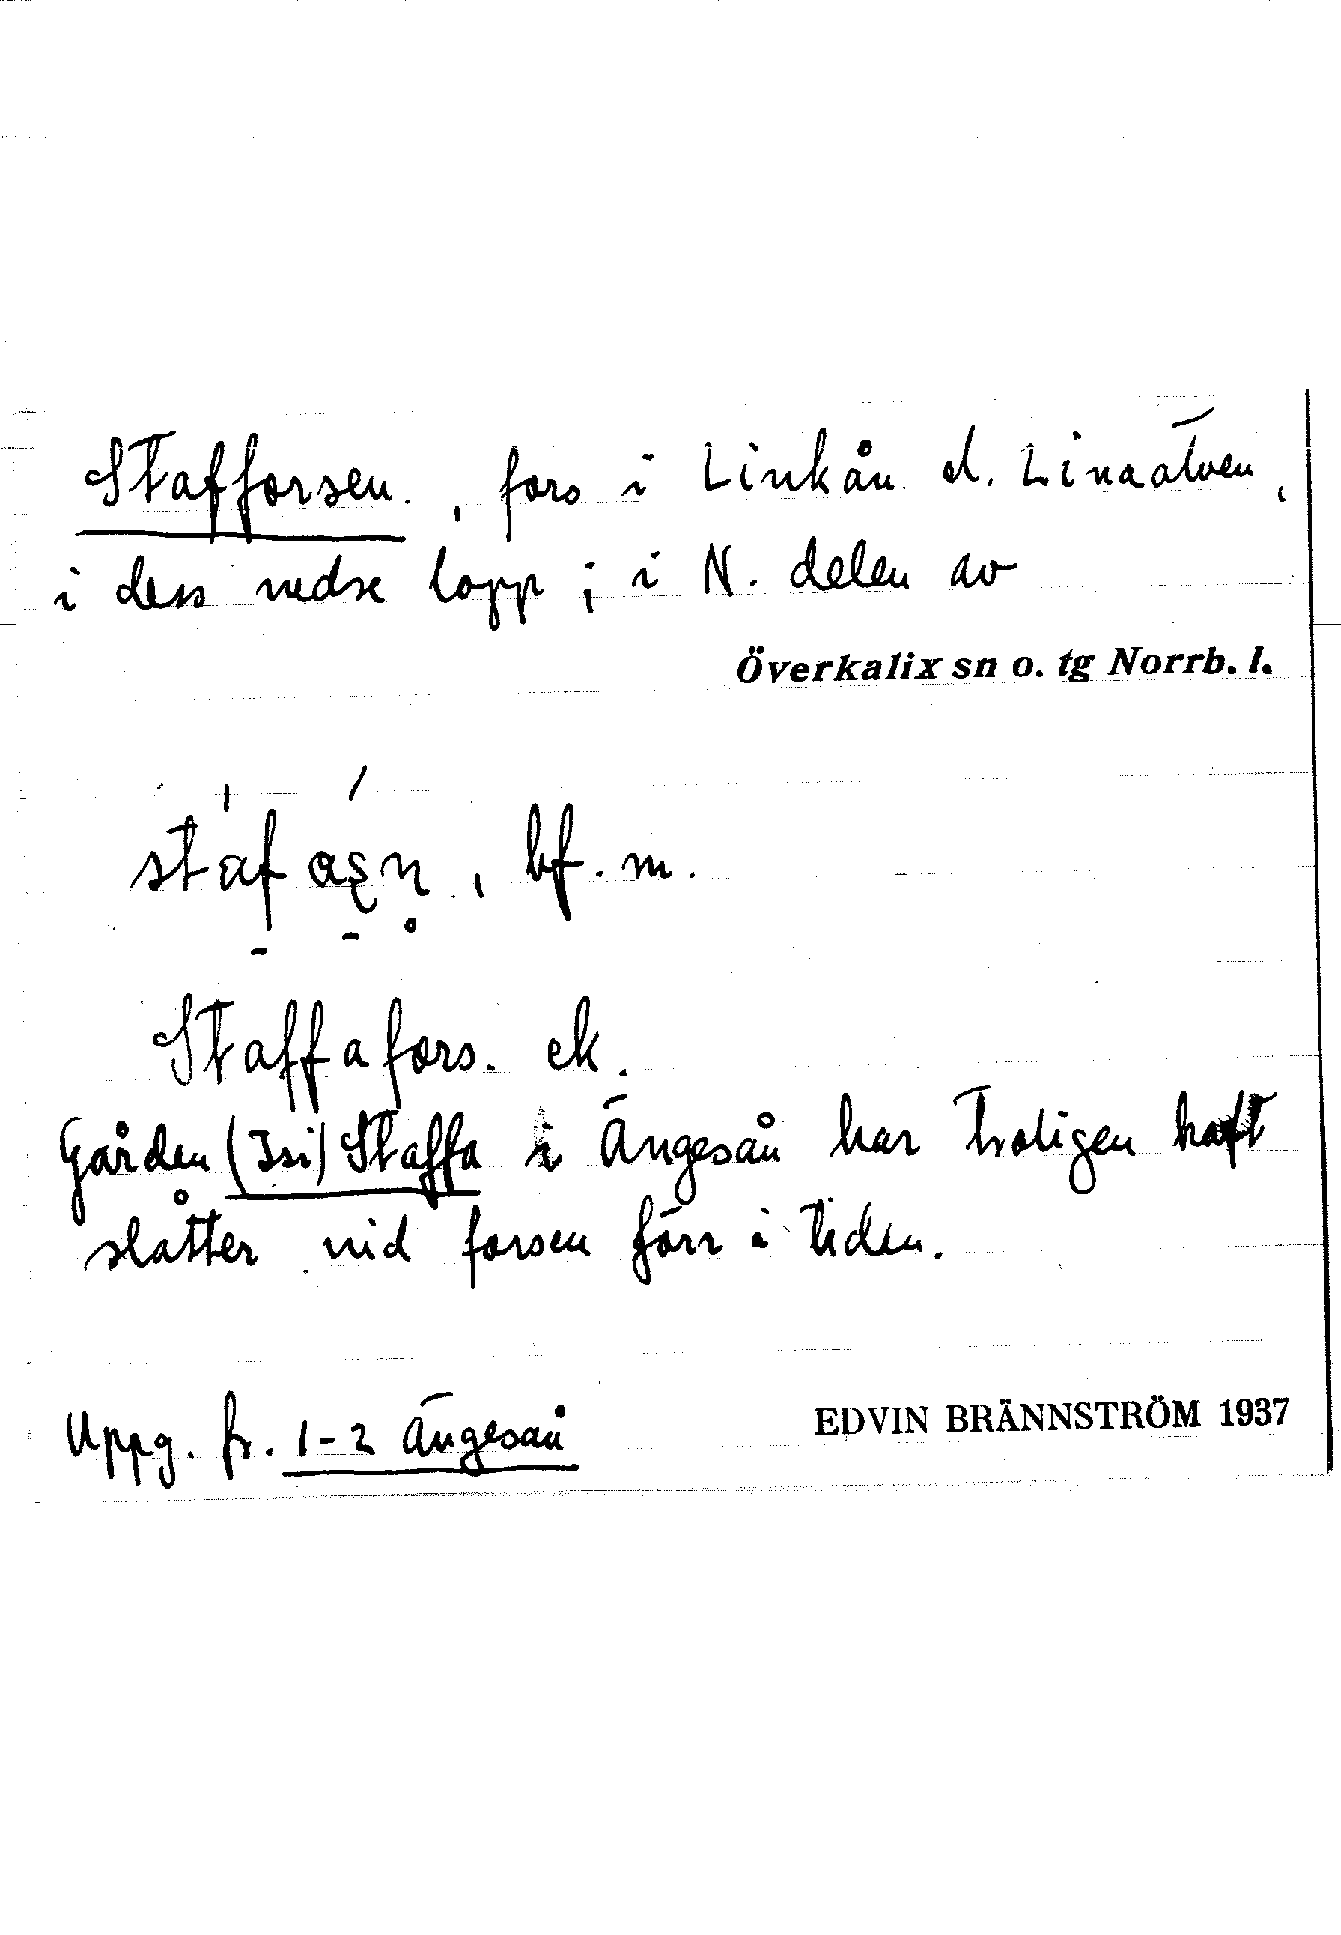 Stafforsen. , fors i Linkån el. Linaälven,
i dess nedre lopp ; i N. delen av
Överkalix sn o. tg Norrb. l.
, bf. m.
Staffafors. ek.
Gården (Isi) Staffa i Ängesån har troligen haft
slåtter vid forsen förr i tiden.
Uppg. fr. 1-2 Ängesån
EDVIN BRÄNNSTRÖM 1937